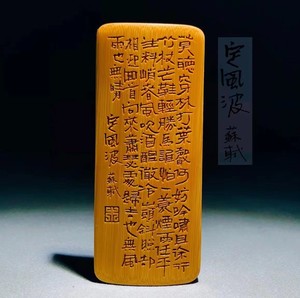 莫聽穿林打葉聲何妨吟嘯且徐行
竹杖芒鞋輕勝馬誰怕一蓑煙雨任平
生料峭春風吹酒醒微冷山頭斜照却
相迎回首向來蕭瑟處歸去也無風
雨也無晴
定風波 蘇軾
定風波
蘇軾